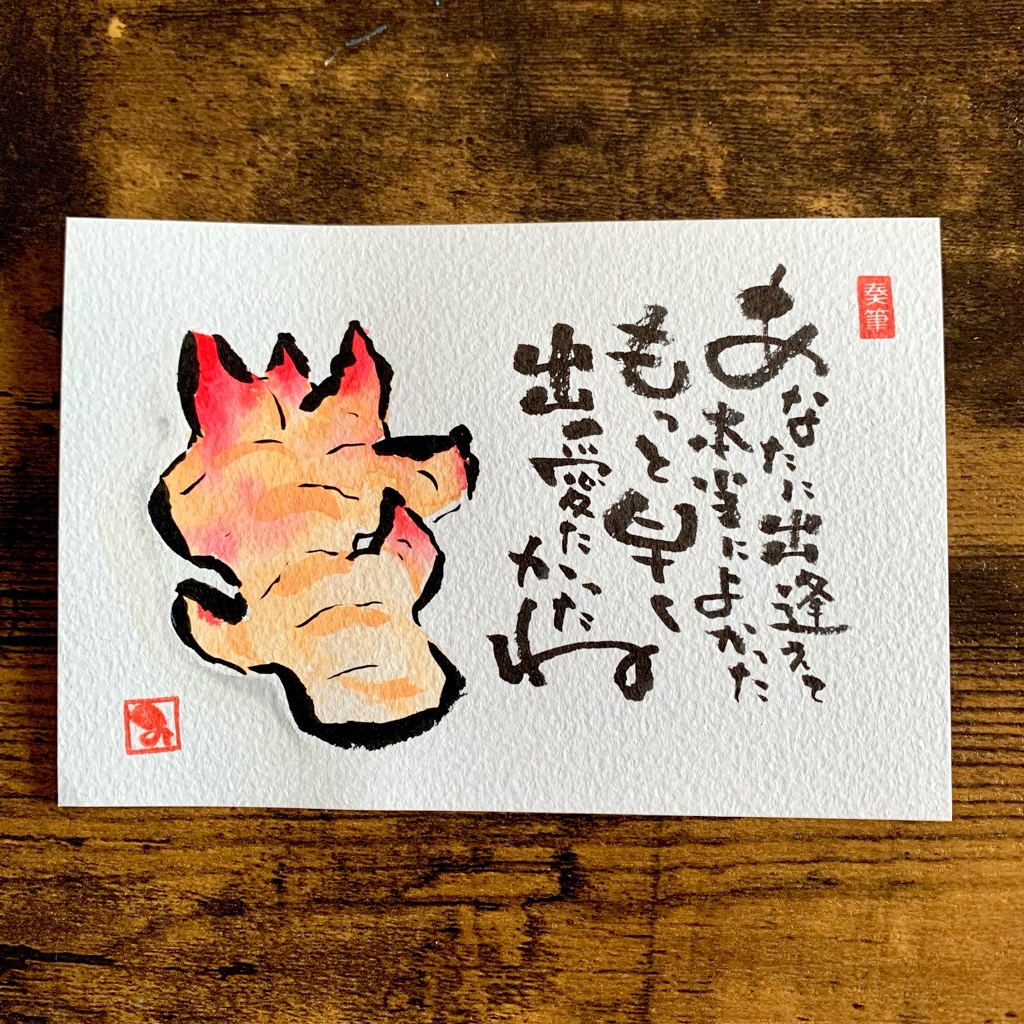 奏筆
あなたに出逢えて
本当によかった
もっと早く
出愛たかったわ
み